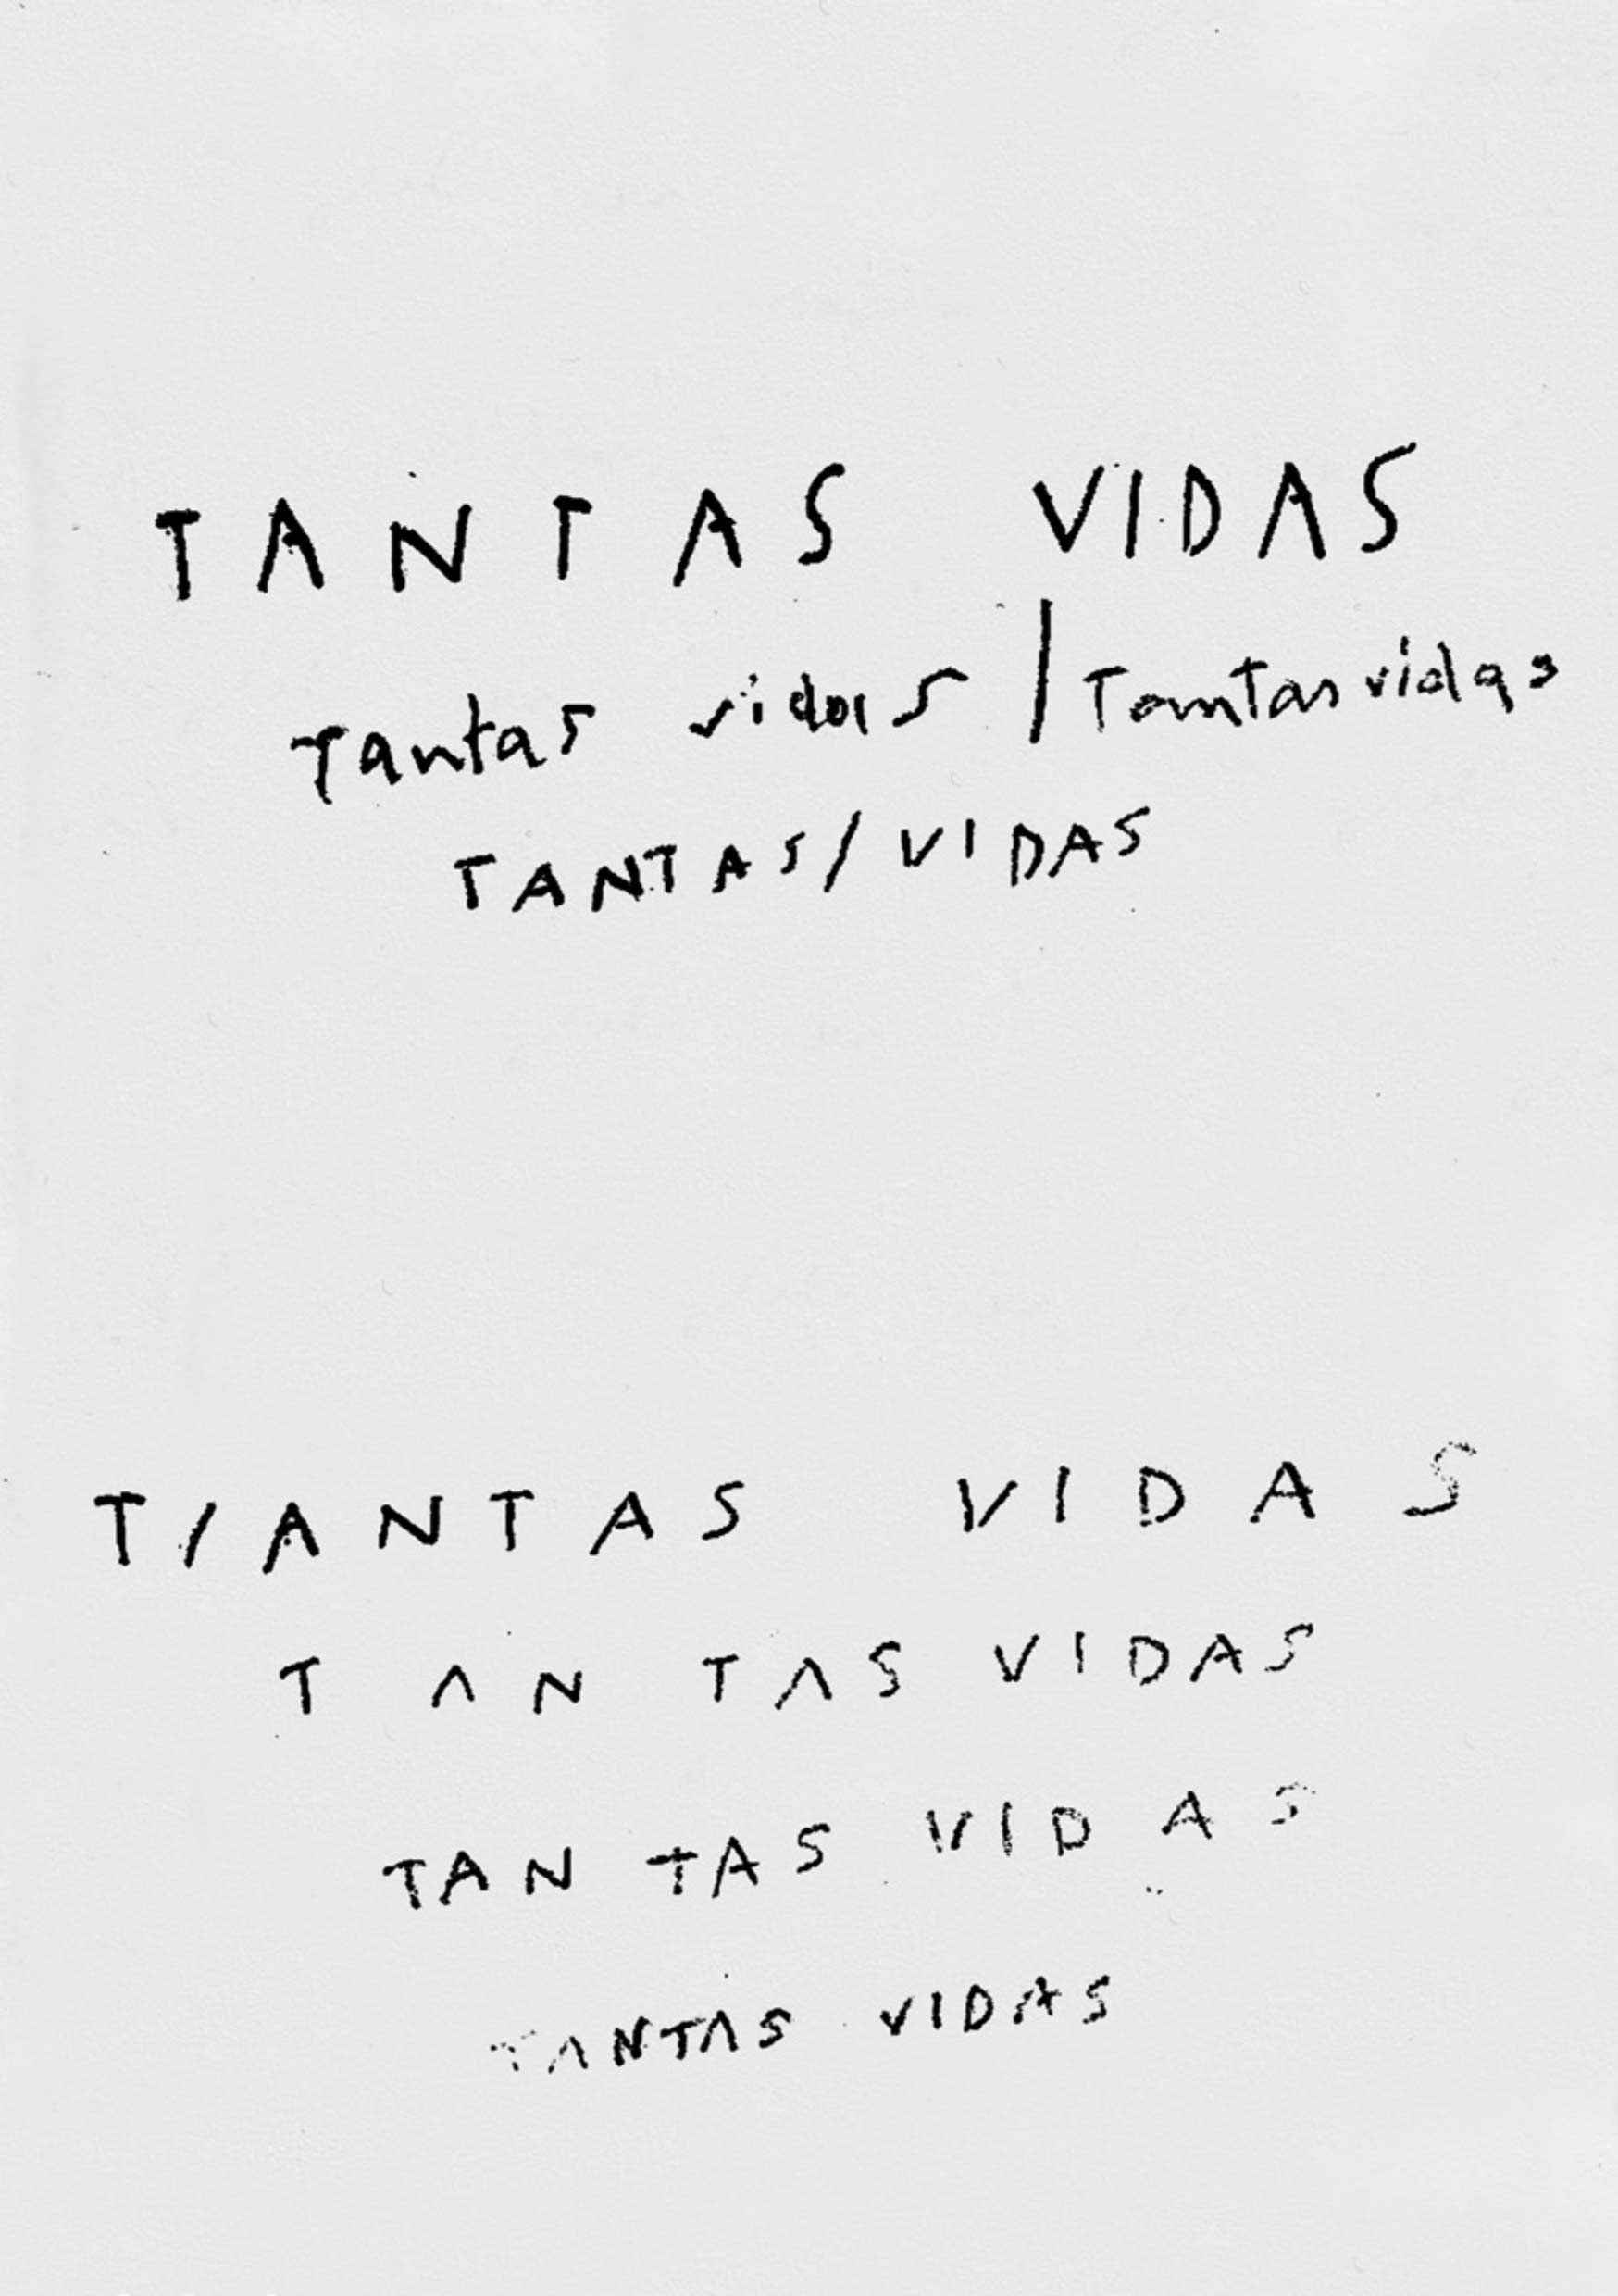 TANTAS VIDAS
Tantas vidas / Tantas vidas
TANTAS/VIDAS
T/ANTAS VIDAS
T AN TAS VIDAS
TAN TAS VIDAS
TANTAS VIDAS